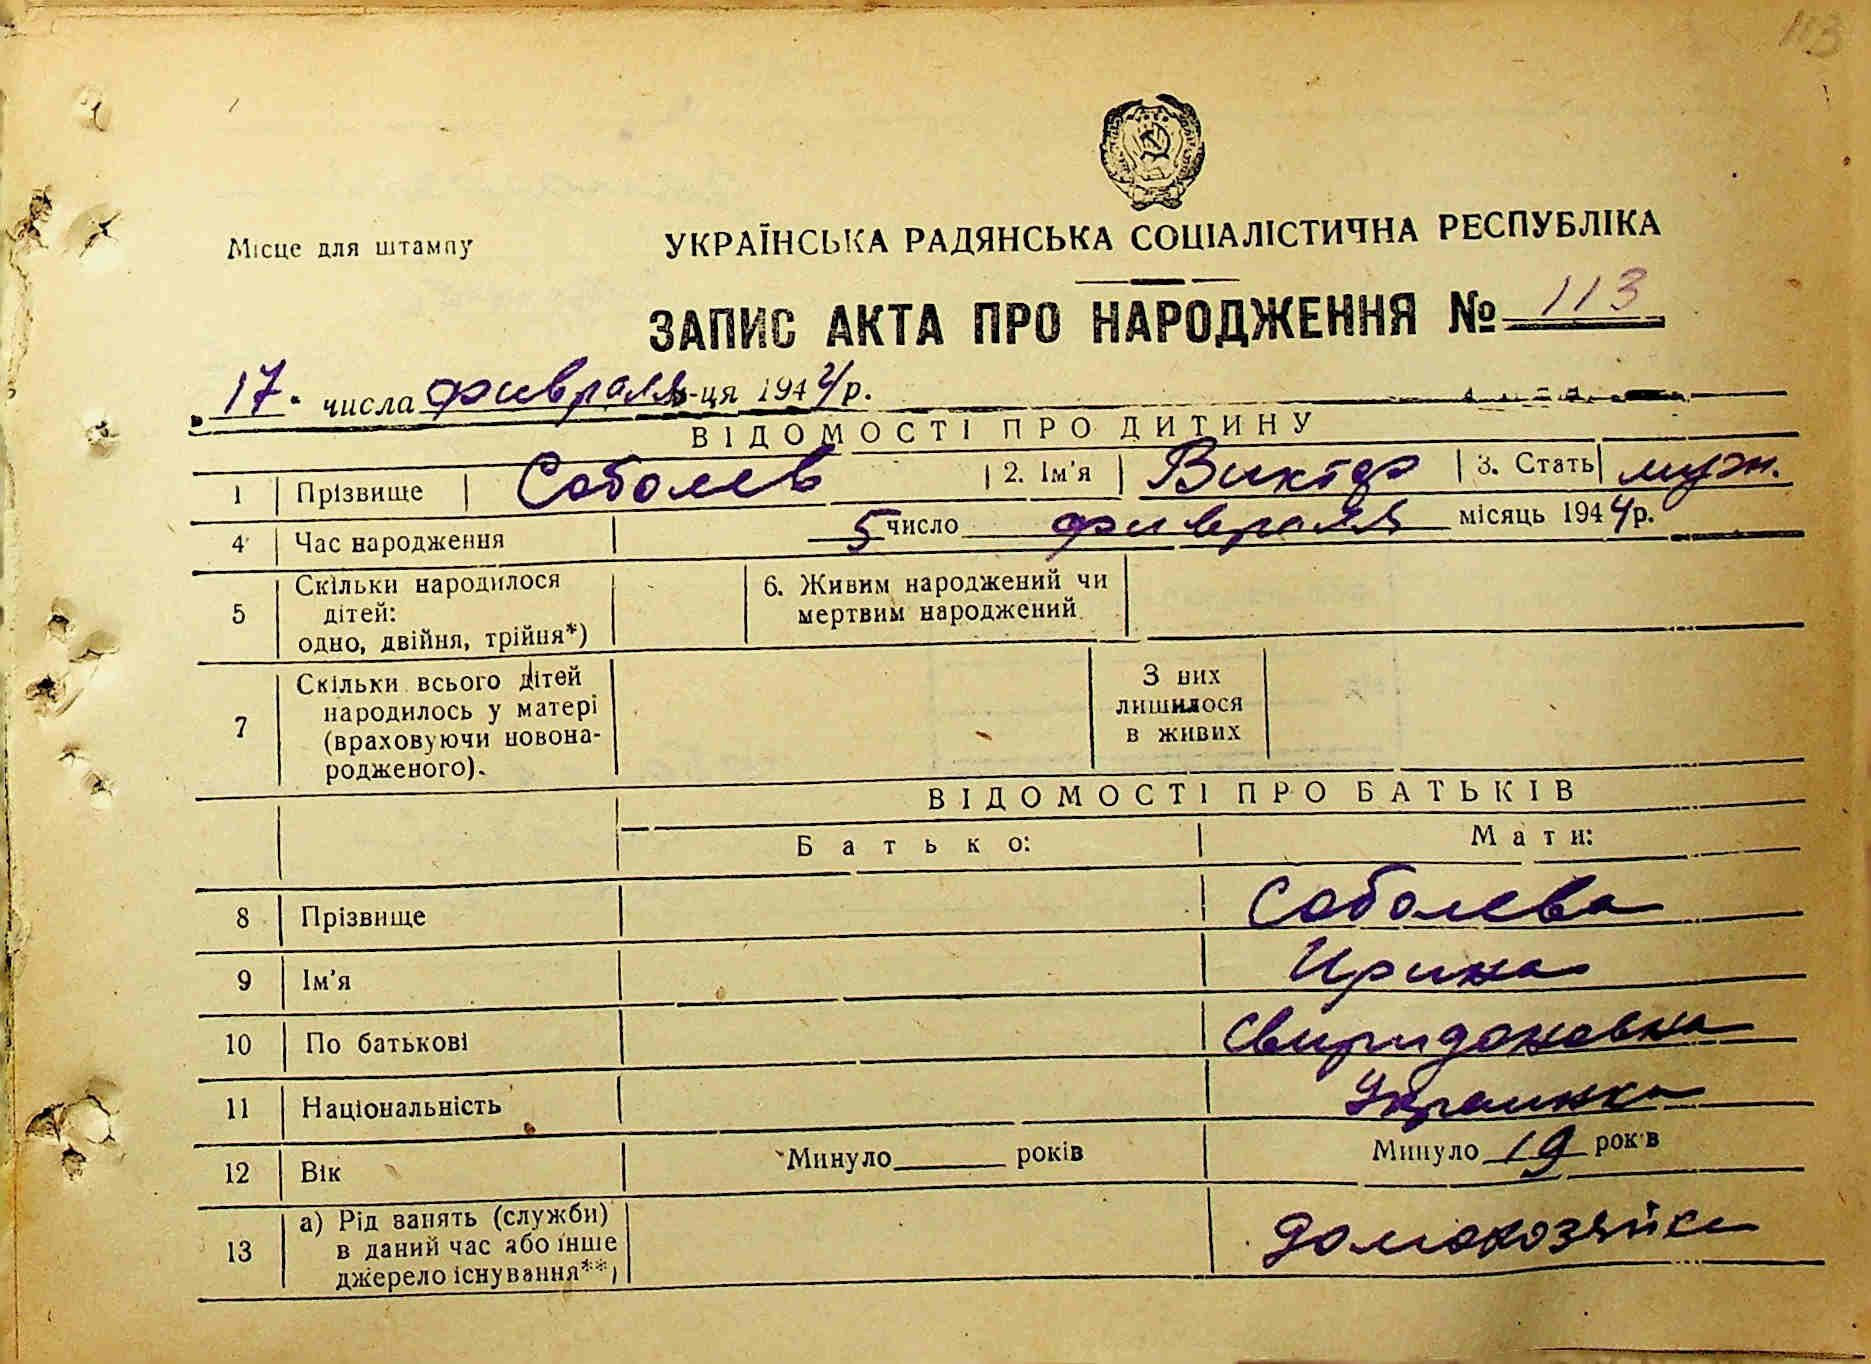 113
Місце для штампу
УКРАЇНСЬКА РАДЯНСЬКА СОЦІАЛІСТИЧНА РЕСПУБЛІКА
ЗАПИС АКТА ПРО НАРОДЖЕННЯ № 113
17 числа февраля м-ця 1944 р.
ВІДОМОСТІ ПРО ДИТИНУ
1 Прізвище Соболев 2. Ім'я Виктор 3. Стать муж.
4 Час народження 5 число февраля місяць 1944 р.
5 Скільки народилося
дітей:
одно, двійня, трійня*)
6. Живим народжений чи
мертвим народжений
7 Скільки всього дітей
народилось у матері
(враховуючи новона-
родженого).
З них
лишилося
в живих
ВІДОМОСТІ ПРО БАТЬКІВ
Батько: Мати:
8 Прізвище Соболева
9 Ім'я Ирина
10 По батькові Свиридоновна
11 Національність Украинка
12 Вік Минуло ______ років Минуло 19 років
13 а) Рід занять (служби)
в даний час або інше
джерело існування**)
домохозяйка